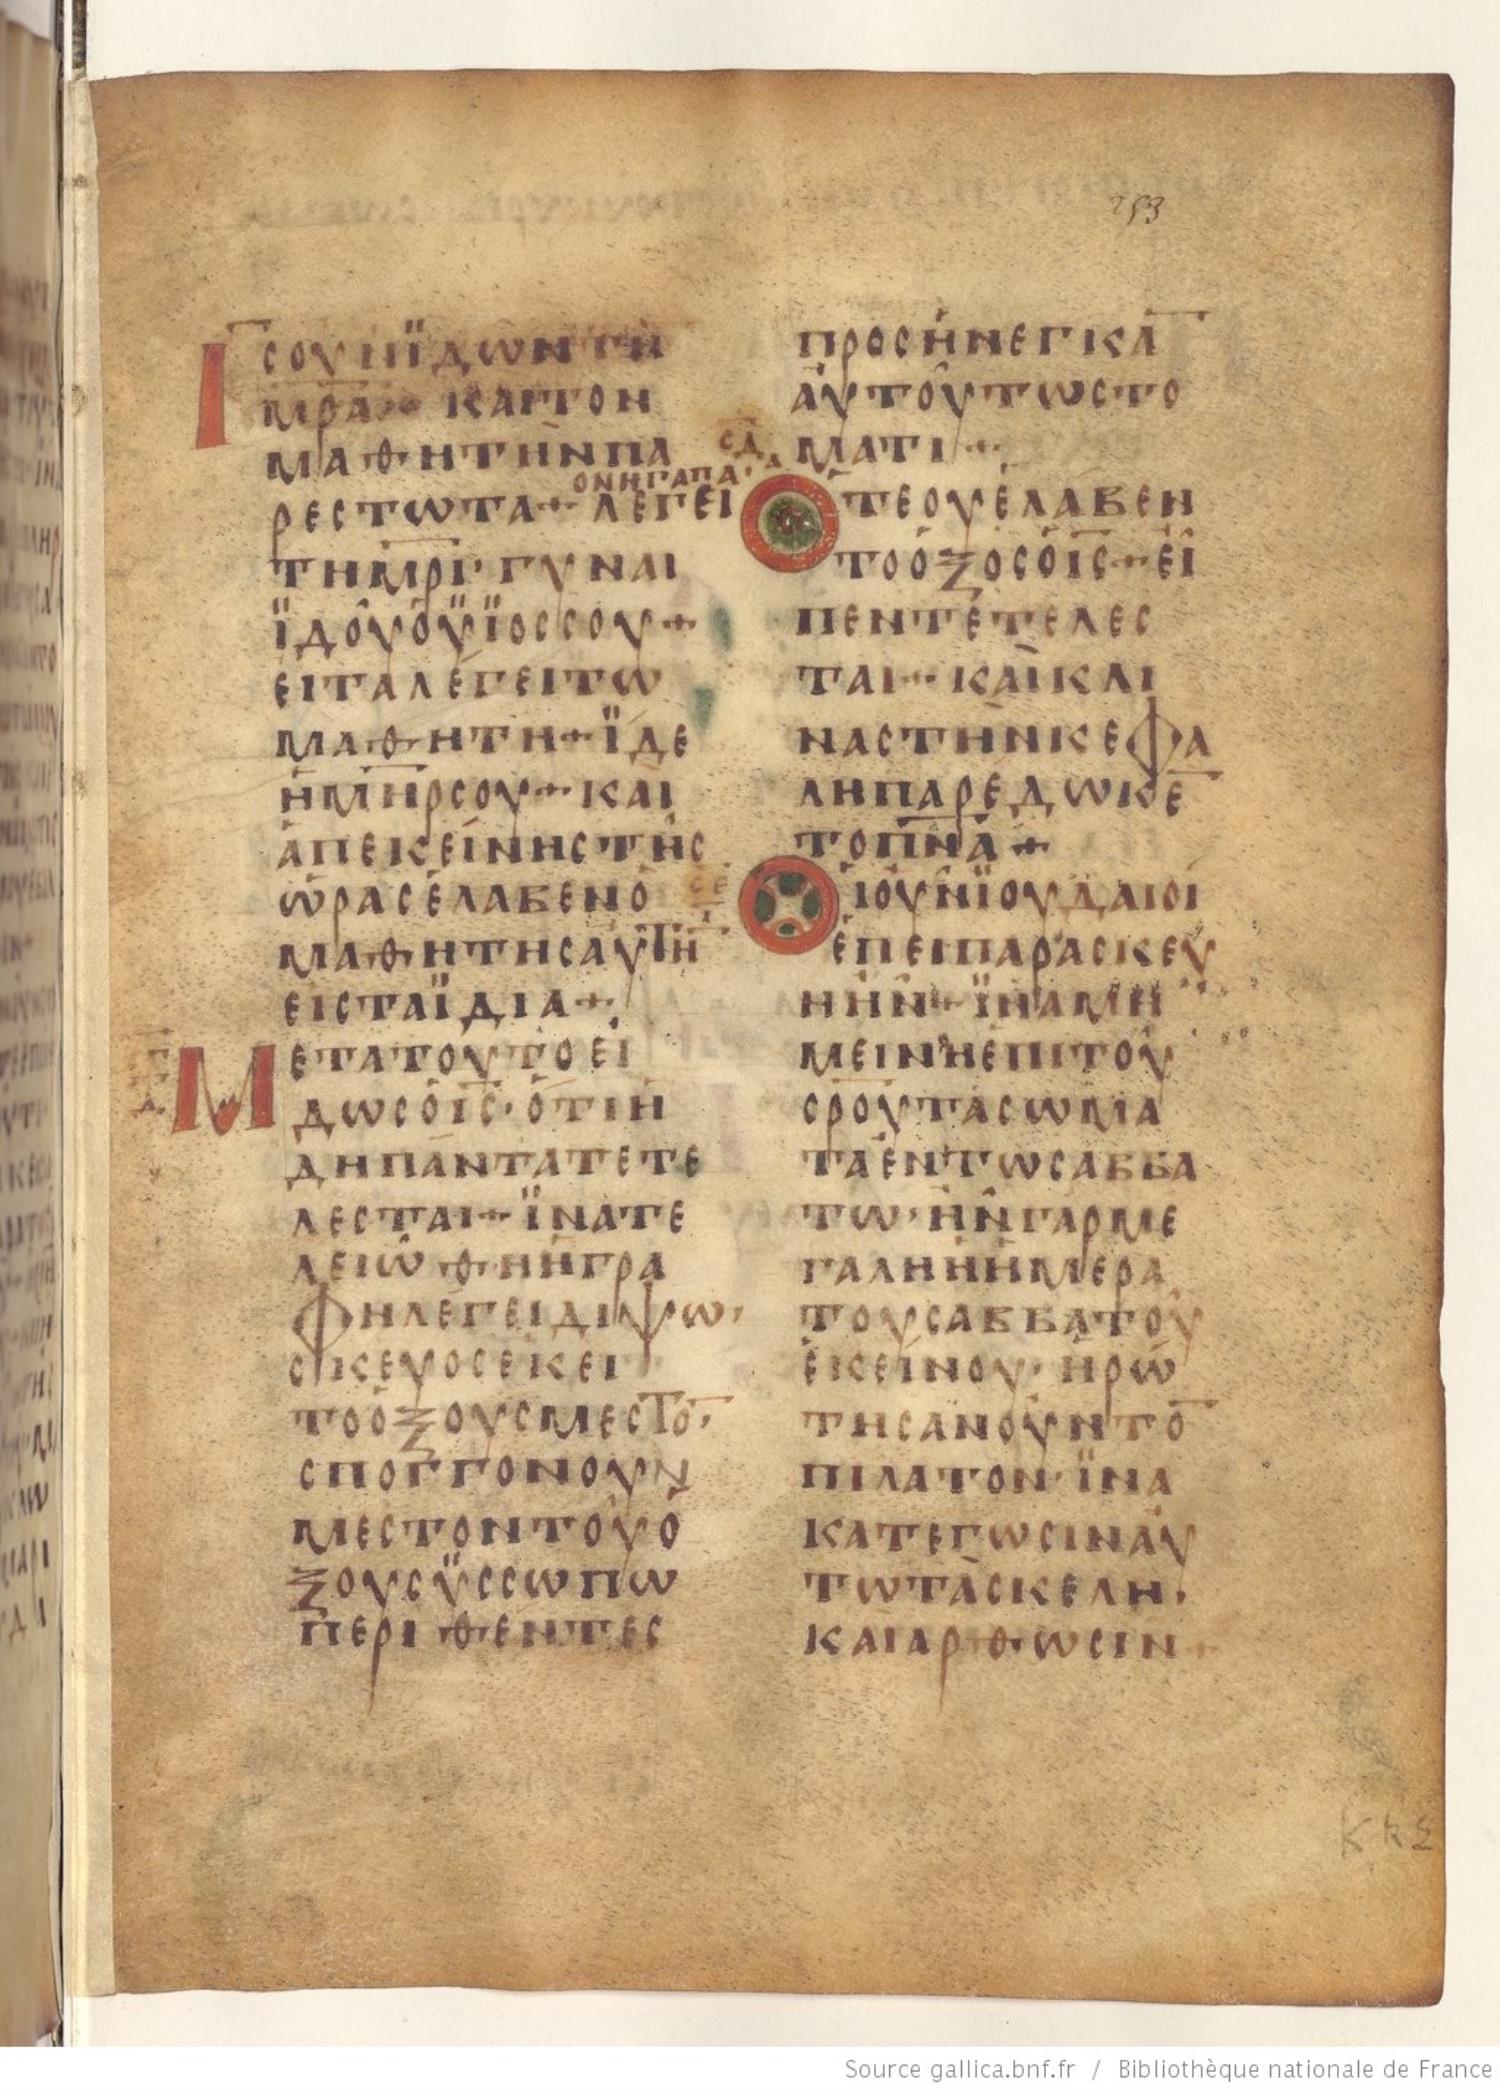 253
ΙΣΟΥΝΪΔΩΝΤΗ
ΜΡΑ + ΚΑΙΤΟΝ
ΜΑΘΗΤΗΝΠΑ
ΟΝΗΓΑΠΑ·
ΡΕΣΤΩΤΑ + ΛΕΓΕΙ
ΤΗΜΡΙ· ΓΥΝΑΙ
ΪΔΟΥΟΫΪΟΣΣΟΥ +
ΕΙΤΑΛΕΓΕΙΤΩ
ΜΑΘΗΤΗ + ΪΔΕ
ΗΜΗΡΣΟΥ + ΚΑΙ
ΑΠΕΚΕΙΝΗΣΤΗΣ
ΩΡΑΣΕΛΑΒΕΝΟ
ΜΑΘΗΤΗΣΑΥΤΗ
ΕΙΣΤΑΪΔΙΑ +
ΜΕΤΑΤΟΥΤΟΕΙ
ΔΩΣΟΙΣ· ΟΤΙΗ
ΔΗΠΑΝΤΑΤΕΤΕ
ΛΕΣΤΑΙ + ΪΝΑΤΕ
ΛΕΙΩΘΗΗΓΡΑ
ΦΗΛΕΓΕΙΔΙΨΩ·
ΣΚΕΥΟΣΕΚΕΙ
ΤΟΟΞΟΥΣΜΕΣΤΟ·
ΣΠΟΓΓΟΝΟΥΝ
ΜΕΣΤΟΝΤΟΥΟ
ΞΟΥΣΫΣΣΩΠΩ
ΠΕΡΙΘΕΝΤΕΣ
ΠΡΟΣΗΝΕΓΚΑ
ΑΥΤΟΥΤΩΣΤΟ
ΣΔ
Α
ΜΑΤΙ +
ΟΤΕΟΥΕΛΑΒΕΝ
ΤΟΟΞΟΣΟΙΣ + ΕΙ
ΠΕΝΤΕΤΕΛΕΣ
ΤΑΙ + ΚΑΙΚΛΙ
ΝΑΣΤΗΝΚΕΦΑ
ΛΗΠΑΡΕΔΩΚΕ
ΤΟΠΝΑ +
ΣΕ
Ι
ΟΙΟΥΝΪΟΥΔΑΙΟΙ
ΕΠΕΙΠΑΡΑΣΚΕΥ
ΗΗΝ + ΪΝΑΜΗ
ΜΕΙΝΗΕΠΙΤΟΥ
ΣΡΟΥΤΑΣΩΜΑ
ΤΑΕΝΤΩΣΑΒΒΑ
ΤΩ· ΗΝΓΑΡΜΕ
ΓΑΛΗΗΗΜΕΡΑ
ΤΟΥΣΑΒΒΑΤΟΥ
ΕΚΕΙΝΟΥ· ΗΡΩ
ΤΗΣΑΝΟΥΝΤΟ
ΠΙΛΑΤΟΝ· ΪΝΑ
ΚΑΤΕΓΩΣΙΝΑΥ
ΤΩΤΑΣΚΕΛΗ·
ΚΑΙΑΡΘΩΣΙΝ +
Source gallica.bnf.fr / Bibliothèque nationale de France